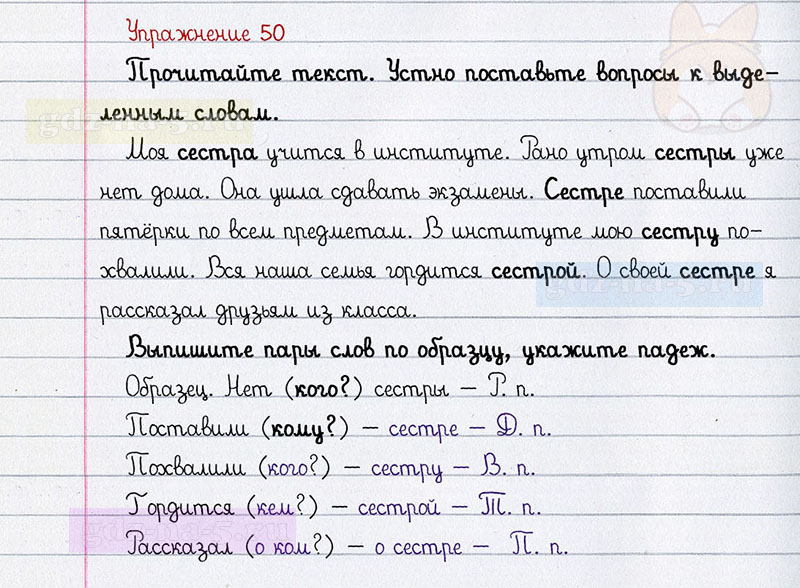 Упражнение 50
Прочитайте текст. Устно поставьте вопросы к выде-
ленным словам.
Моя сестра учится в институте. Рано утром сестры уже
нет дома. Она ушла сдавать экзамены. Сестре поставили
пятёрки по всем предметам. В институте мою сестру по-
хвалили. Вся наша семья гордится сестрой. О своей сестре я
рассказал друзьям из класса.
Выпишите пары слов по образцу, укажите падеж.
Образец. Нет (кого?) сестры – Р. п.
Поставили (кому?) – сестре – Д. п.
Похвалили (кого?) – сестру – В. п.
Гордится (кем?) – сестрой – Т. п.
Рассказал (о ком?) – о сестре – П. п.
gdz-na-5.ru
gdz-na-5.ru
gdz-na-5.ru